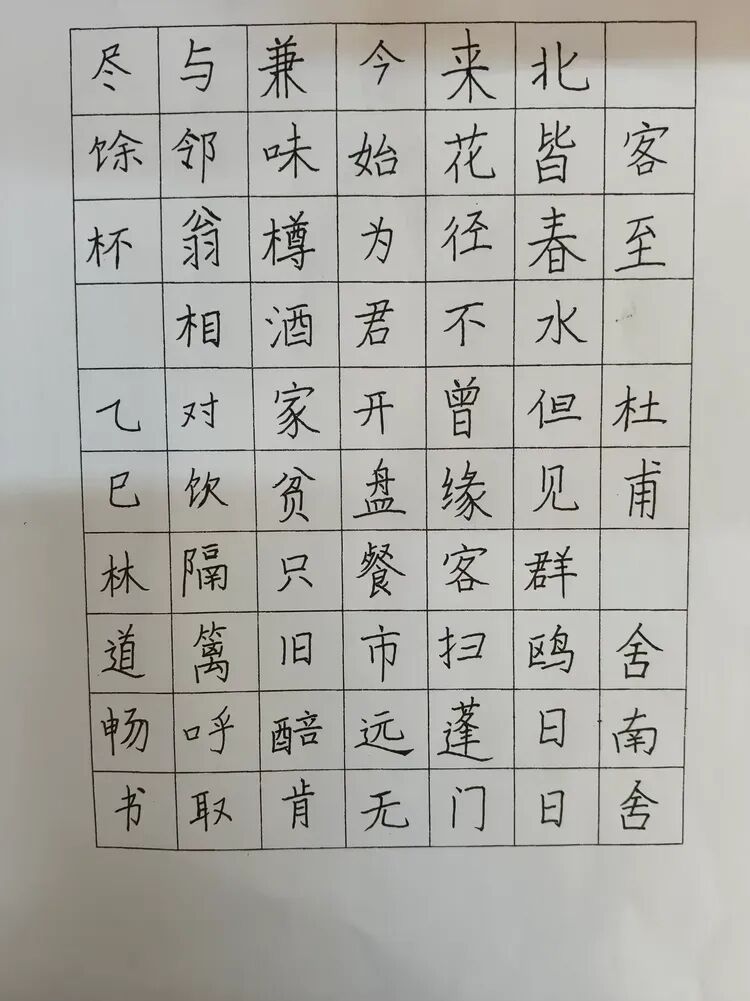 客至 杜甫 舍南舍
北皆春水但见群鸥日日
来花径不曾缘客扫蓬门
今始为君开盘餐市远无
兼味樽酒家贫只旧醅肯
与邻翁相对饮隔篱呼取
尽馀杯 乙巳林道畅书